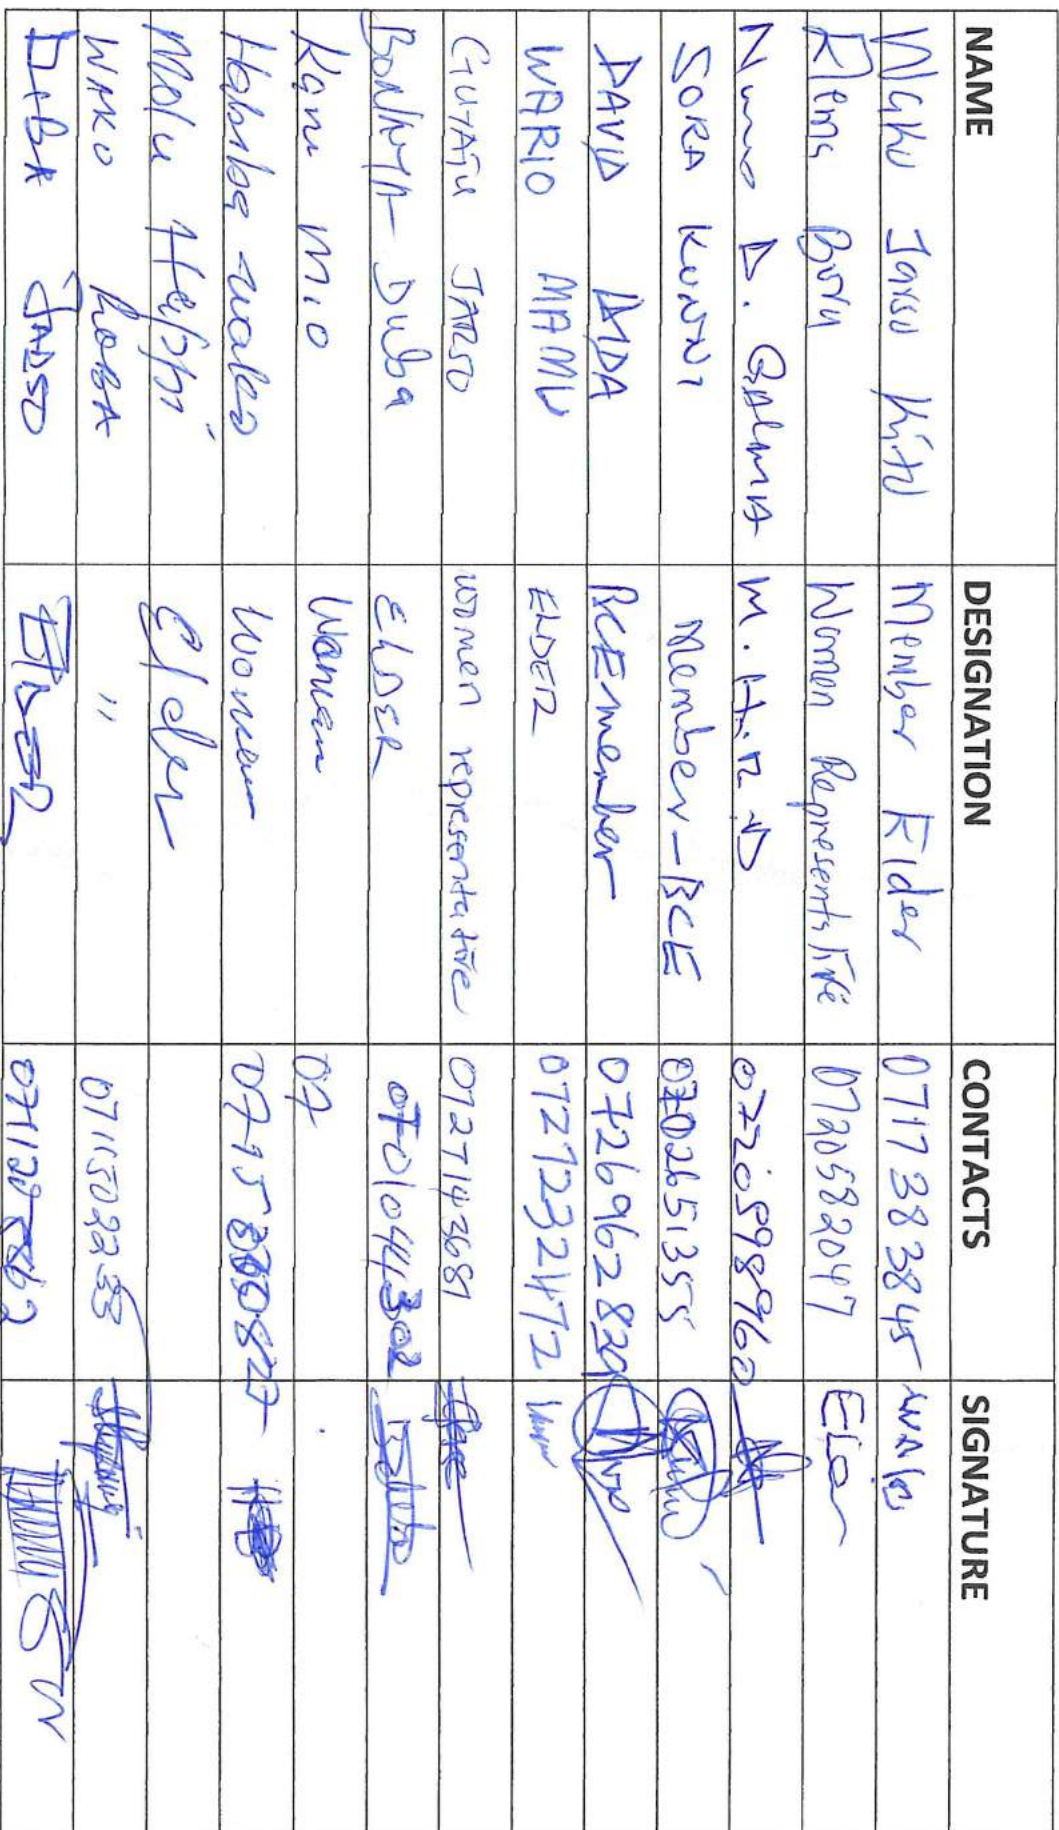 NAME DESIGNATION CONTACTS SIGNATURE
Waku Jarso Kito Member Elder 0717383845
Elema Boru Women Representative 0720582047
Numo D. GALMA M.H.R.D 0720598960
SORA KUNNI Member-BCE 0702651355
DAVID DIDA BCE member 0726962829
WARIO MAMU ELDER 0727232472
GUYATU JARSO women representative 0727143681
BONAYA Duba ELDER 0701044302
Kanu Mio Woman 07
Habiba wako Woman 0715360827
Molu Helpi Elder
WAKO ROBA " 0711502233
DIBA JARSO ELDER 0711292862